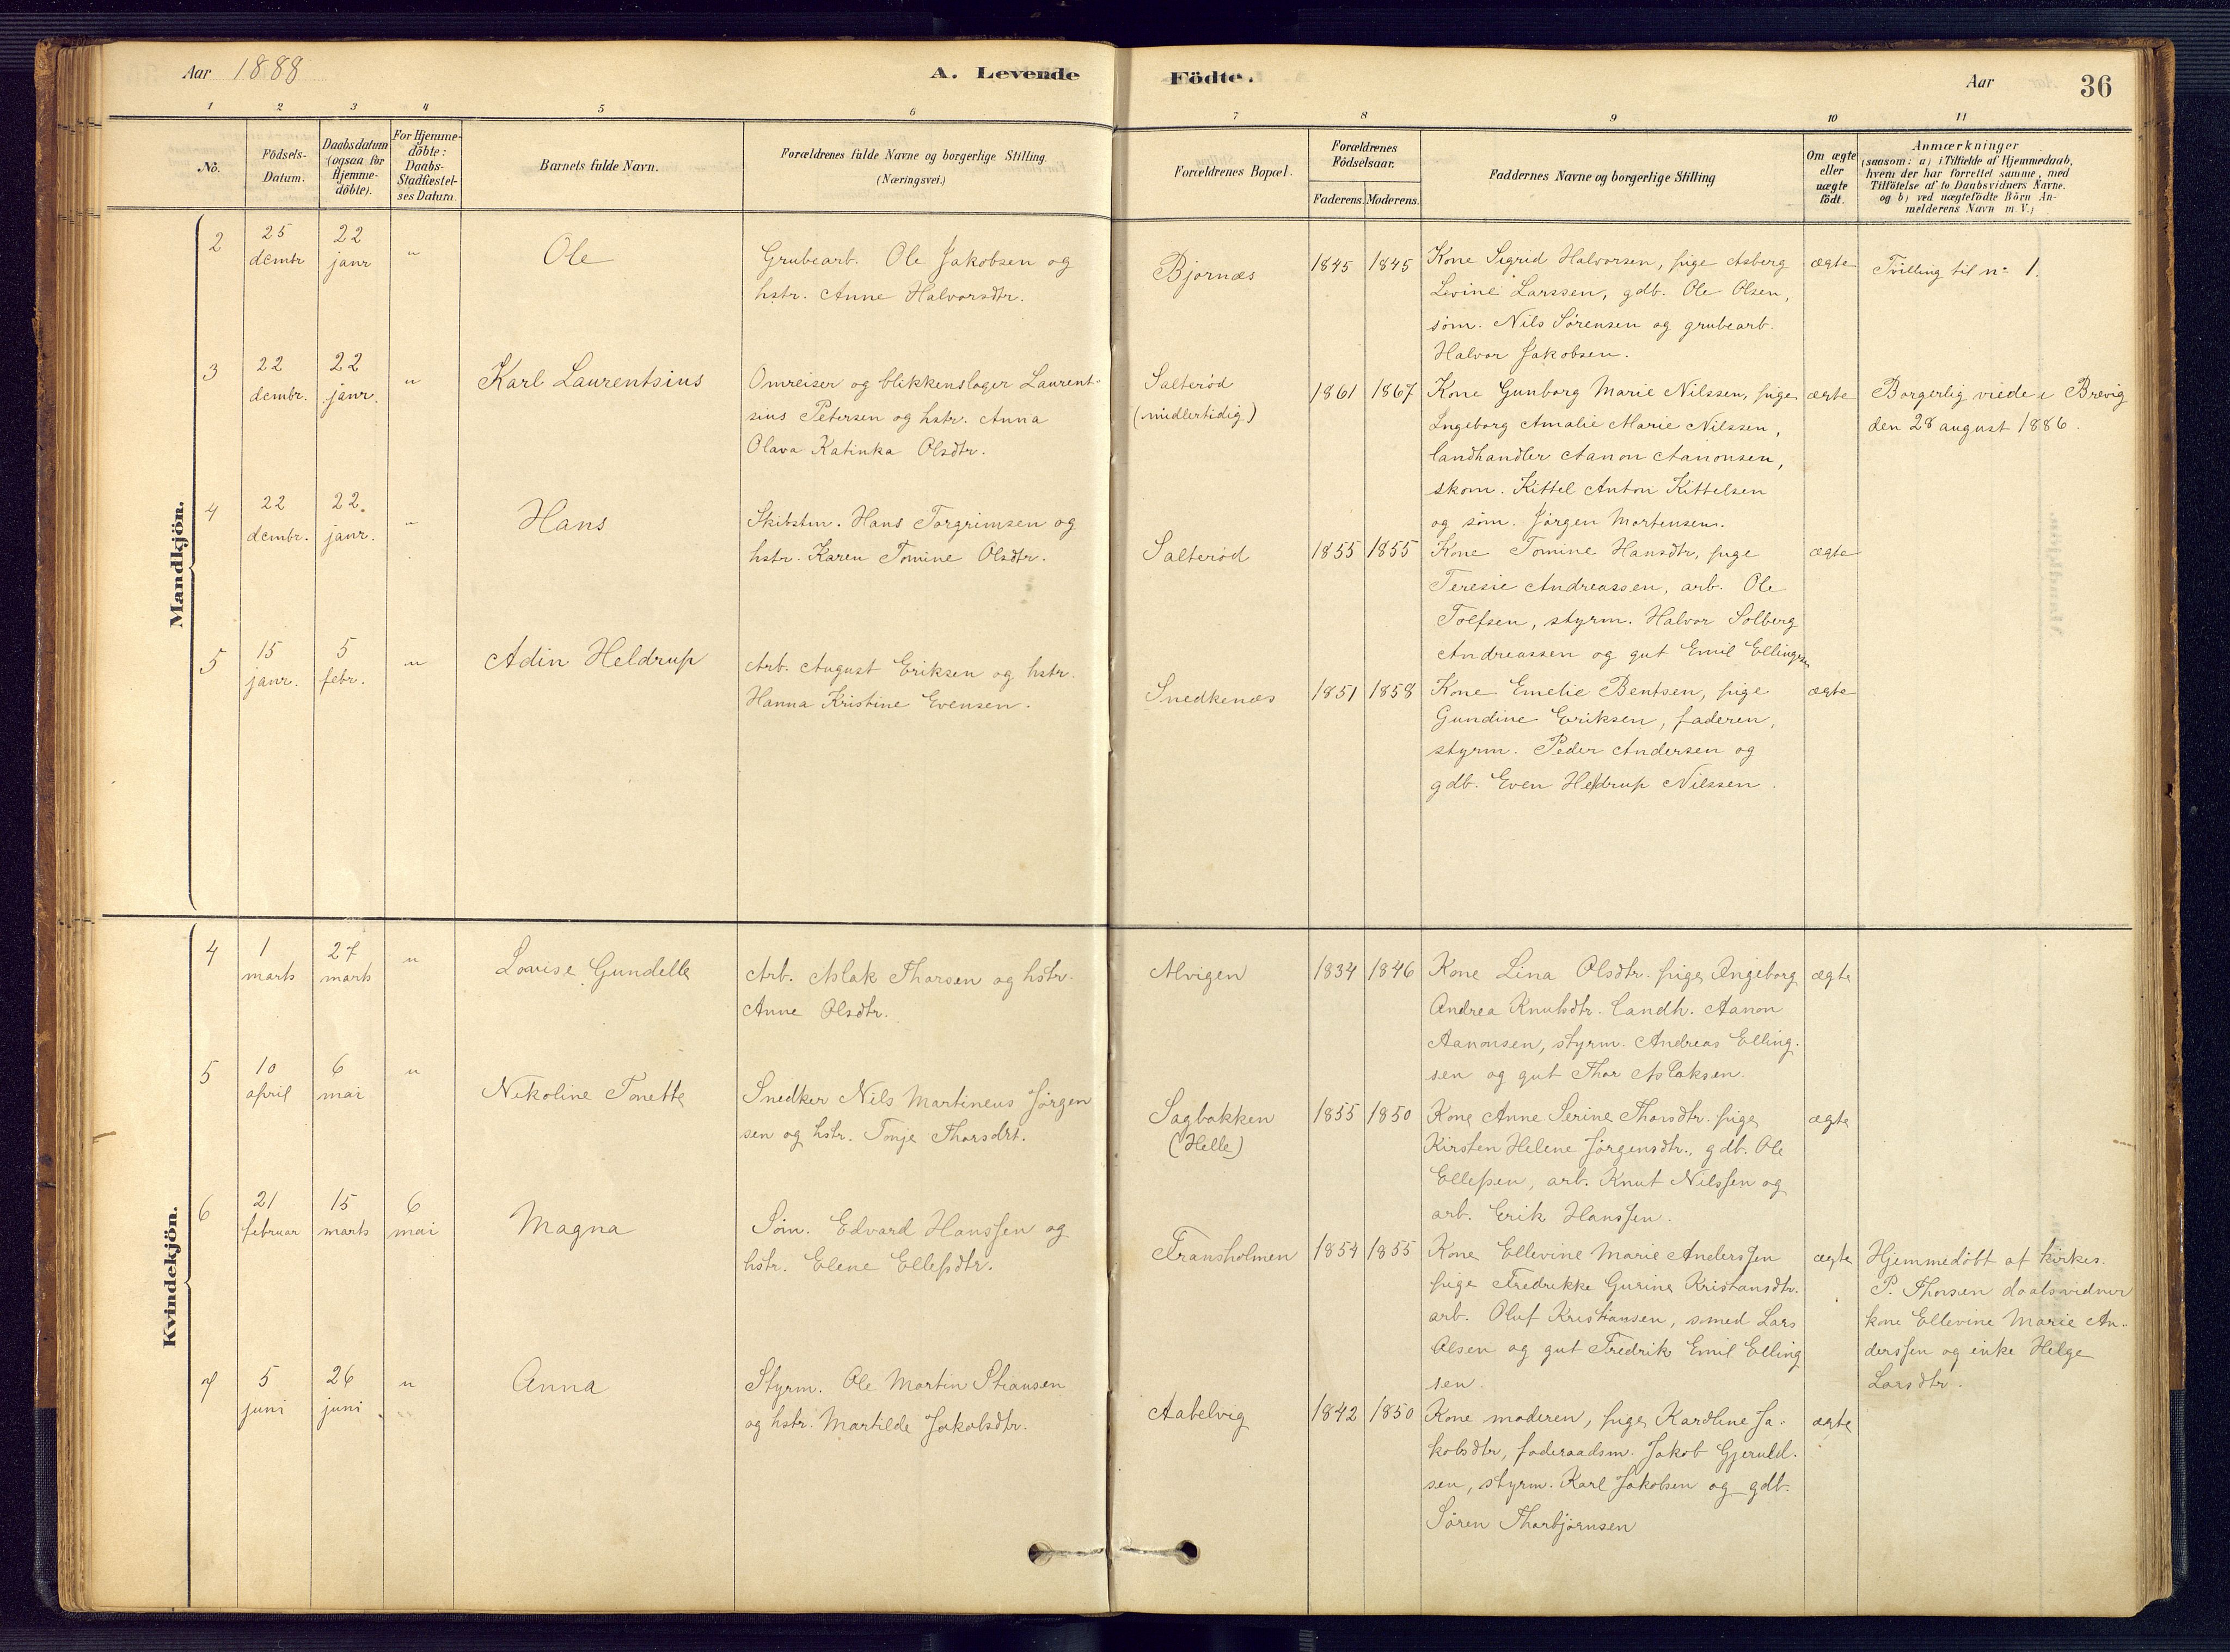 Aar 1888
A. Levende Födte.
Aar
36
1 2 3 4 5 6 7 8 9 10 11
No.
Födsels-
Datum.
Daabsdatum
(ogsaa for
Hjemme-
döbte).
For Hjemme-
döbte:
Daabs-
Stadfæstel-
ses Datum.
Barnets fulde Navn.
Forældrenes fulde Navne og borgerlige Stilling.
(Næringsvei.)
Forældrenes Bopæl.
Forældrenes
Födselsaar.
Faderens. Moderens.
Faddernes Navne og borgerlige Stilling
Om ægte
eller
uægte
födt.
Anmærkninger
(saasom: a) i Tilfælde af Hjemmedaab,
hvem der har forrettet samme, med
Tilföielse af to Daabsvidners Navne.
og b) ved uægtefödte Börn An-
melderens Navn m. V.)
Mandkjön.
2
25
dembr
22
janr
"
Ole
Grubearb. Ole Jakobsen og
hstr. Anne Halvorsdtr.
Bjornæs
1845 1845
Kone Sigrid Halvorsen, pige Asberg
Levine Larssen, gdb. Ole Olsen,
söm. Nils Sörensen og grubearb.
Halvor Jakobsen.
ægte
Tvilling til no 1.
3
22
dembr.
22
janr.
"
Karl Laurentsius
Omreiser og blikkenslager Laurent-
sius Petersen og hstr. Anna
Olava Katinka Olsdtr.
Salteröd
(midlertidig)
1861 1867
Kone Gunborg Marie Nilssen, pige
Ingeborg Amalie Marie Nilssen,
landhandler Aanon Aanonsen,
skom. Kittel Anton Kittelsen
og söm. Jörgen Mortensen.
ægte
Borgerlig viede i Brevig
den 28 august 1886.
4
22
dembr.
22.
janr.
"
Hans
Skibstm. Hans Torgrimsen og
hstr. Karen Tomine Olsdtr.
Salteröd
1855 1855
Kone Tomine Hansdtr, pige
Teresie Andreassen, arb. Ole
Tolfsen, styrm. Halvor Solberg
Andreassen og gut Emil Ellingsen
ægte
5
15
janr.
5
febr.
"
Adin Heldrup
Arb. August Eriksen og hstr.
Hanna Kristine Evensen.
Snedkenæs
1851 1858
Kone Emelie Bentsen, pige
Gundine Eriksen, faderen,
styrm. Peder Andersen og
gdb. Even Heldrup Nilssen.
ægte
Kvindekjön.
4
1
marts
27
marts
"
Lovise Gundelle
Arb. Aslak Thorsen og hstr.
Anne Olsdtr.
Alvigen
1834 1846
Kone Lina Olsdtr. pige Ingeborg
Andrea Knutsdtr. landh. Aanon
Aanonsen, styrm. Andreas Elling-
sen og gut Thor Aslaksen.
ægte
5
10
april
6
mai
"
Nikoline Tonette
Snedker Nils Martineus Jörgen
sen og hstr. Tonje Thorsdrt.
Sagbakken
(Helle)
1855 1850
Kone Anne Serine Thorsdtr. pige
Kirsten Helene Jörgensdtr., gdb. Ole
Ellefsen, arb. Knut Nilssen og
arb. Erik Hanssen.
ægte
6
21
februar
15
marts
6
mai
Magna
Söm. Edvard Hanssen og
hstr. Elene Ellefsdtr.
Fransholmen
1854 1855
Kone Ellevine Marie Anderssen
pige Fredrikke Gurine Kristansdtr.
arb. Oluf Kristiansen, smed Lars
Olsen og gut Fredrik Emil Elling
sen.
ægte
Hjemmedöbt af kirkes.
P. Thorsen daabsvidner
kone Ellevine Marie An-
derssen og enke Helge
Larsdtr.
7
5
juni
26
juni
"
Anna
Styrm. Ole Martin Stiansen
og hstr. Martilde Jakobsdtr.
Aabelvig
1842 1850
Kone moderen, pige Karoline Ja-
kobsdtr, föderaadsm. Jakob Gjeruld-
sen, styrm. Karl Jakobsen og gdb.
Sören Thorbjörnsen
ægte